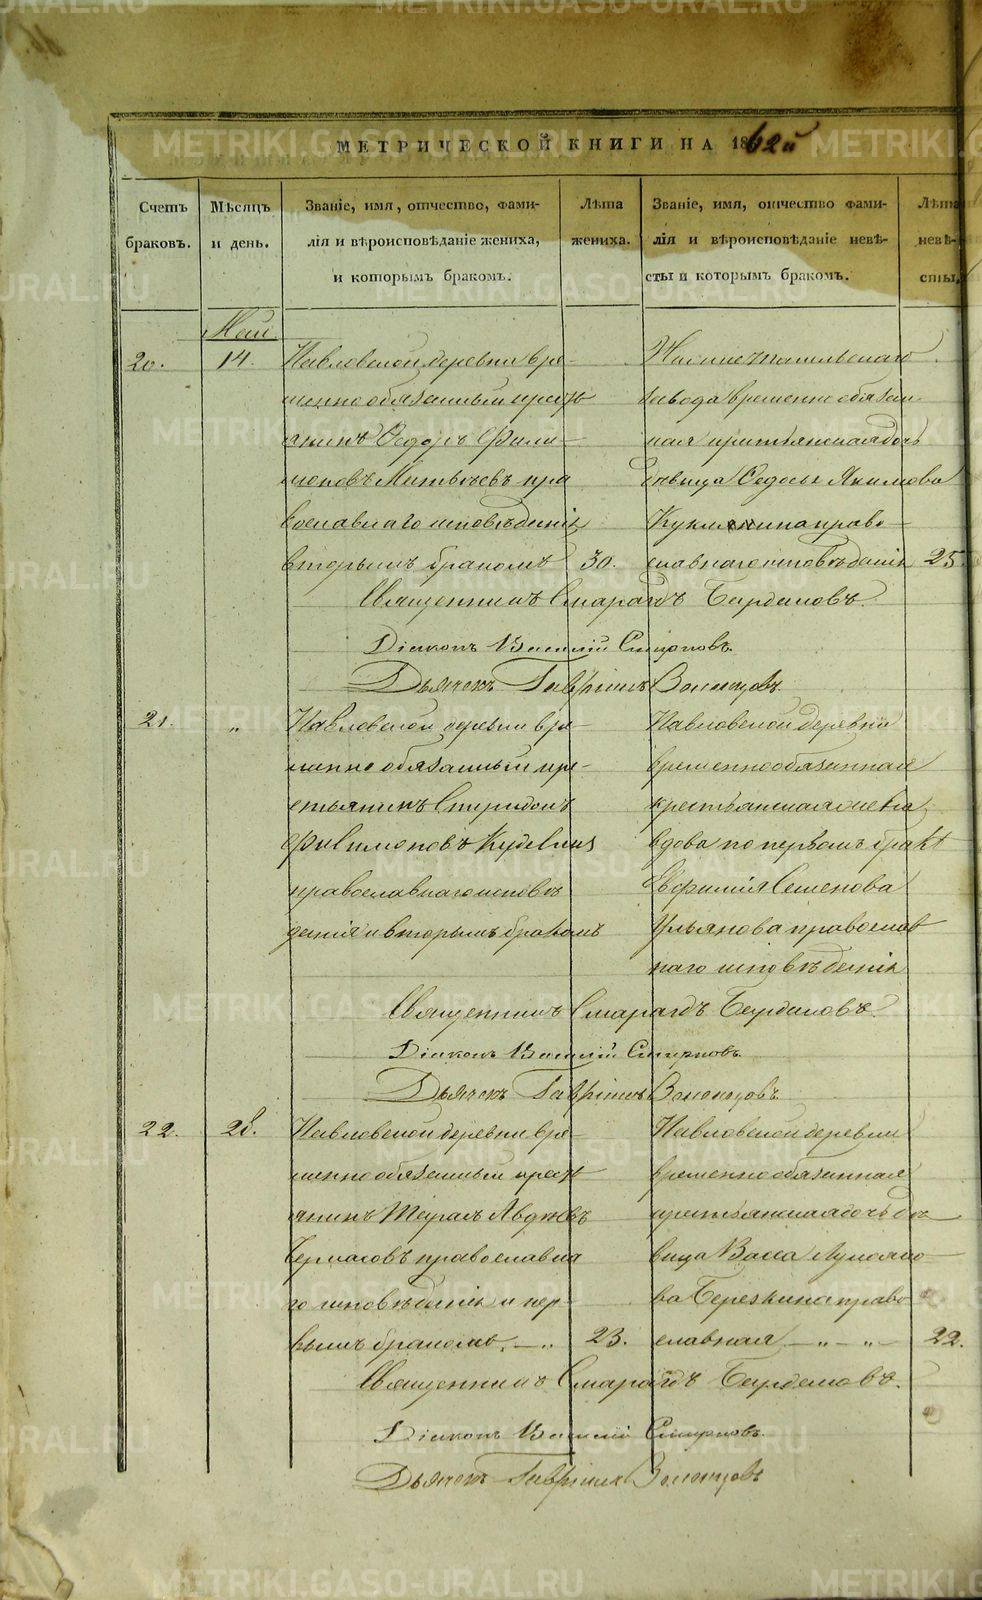 МЕТРИЧЕСКОЙ КНИГИ НА 1862й
Счетъ браковъ.
Мѣсяцъ и день.
Званіе, имя, отчество, фами-
лія и вѣроисповѣданіе жениха,
и которымъ бракомъ.
Лѣта жениха.
Званіе, имя, отчество фами-
лія и вѣроисповѣданіе невѣ-
сты и которымъ бракомъ.
Лѣта невѣ-
сты,
Маи
20.
14.
Павловской деревни вре-
менно обязанный крест
янинъ Федоръ Фили-
моновъ пра
вославнаго исповѣданія
вторымъ бракомъ
30.
Нижнетагильскаго
завода временно обязан
ная крестьянская дочь
дѣвица Федосья Якимова
право-
славнаго исповѣданія
25.
Священникъ Смарагдъ Бирюковъ
Діаконъ Василій Смирновъ.
Дьячекъ Гавріилъ
21.
"
Павловской деревни вре-
менно обязанный кре-
стьянинъ Спиридонъ
Филимоновъ
православнаго исповѣ
данія и вторымъ бракомъ
Павловской деревни
временнообязанная
крестьянская женка
вдова по первомъ бракѣ
Евфимія Семенова
Ульянова православ
наго исповѣданія
Священникъ Смарагдъ
Діаконъ Василій Смирновъ.
Дьячекъ Гавріилъ
22.
28.
Павловской деревни вре-
менно обязанный крест
янинъ Авдѣевъ
православна
го исповѣданія и пер-
вымъ бракомъ. — "
23.
Павловской деревни
временно обязанная
крестьянская дочь дѣ
вица Васса
ва Березкина право
славная — " — " —
22.
Священникъ Смарагдъ
Діаконъ Василій Смирновъ.
Дьячекъ Гавріилъ
METRIKI.GASO-URAL.RU